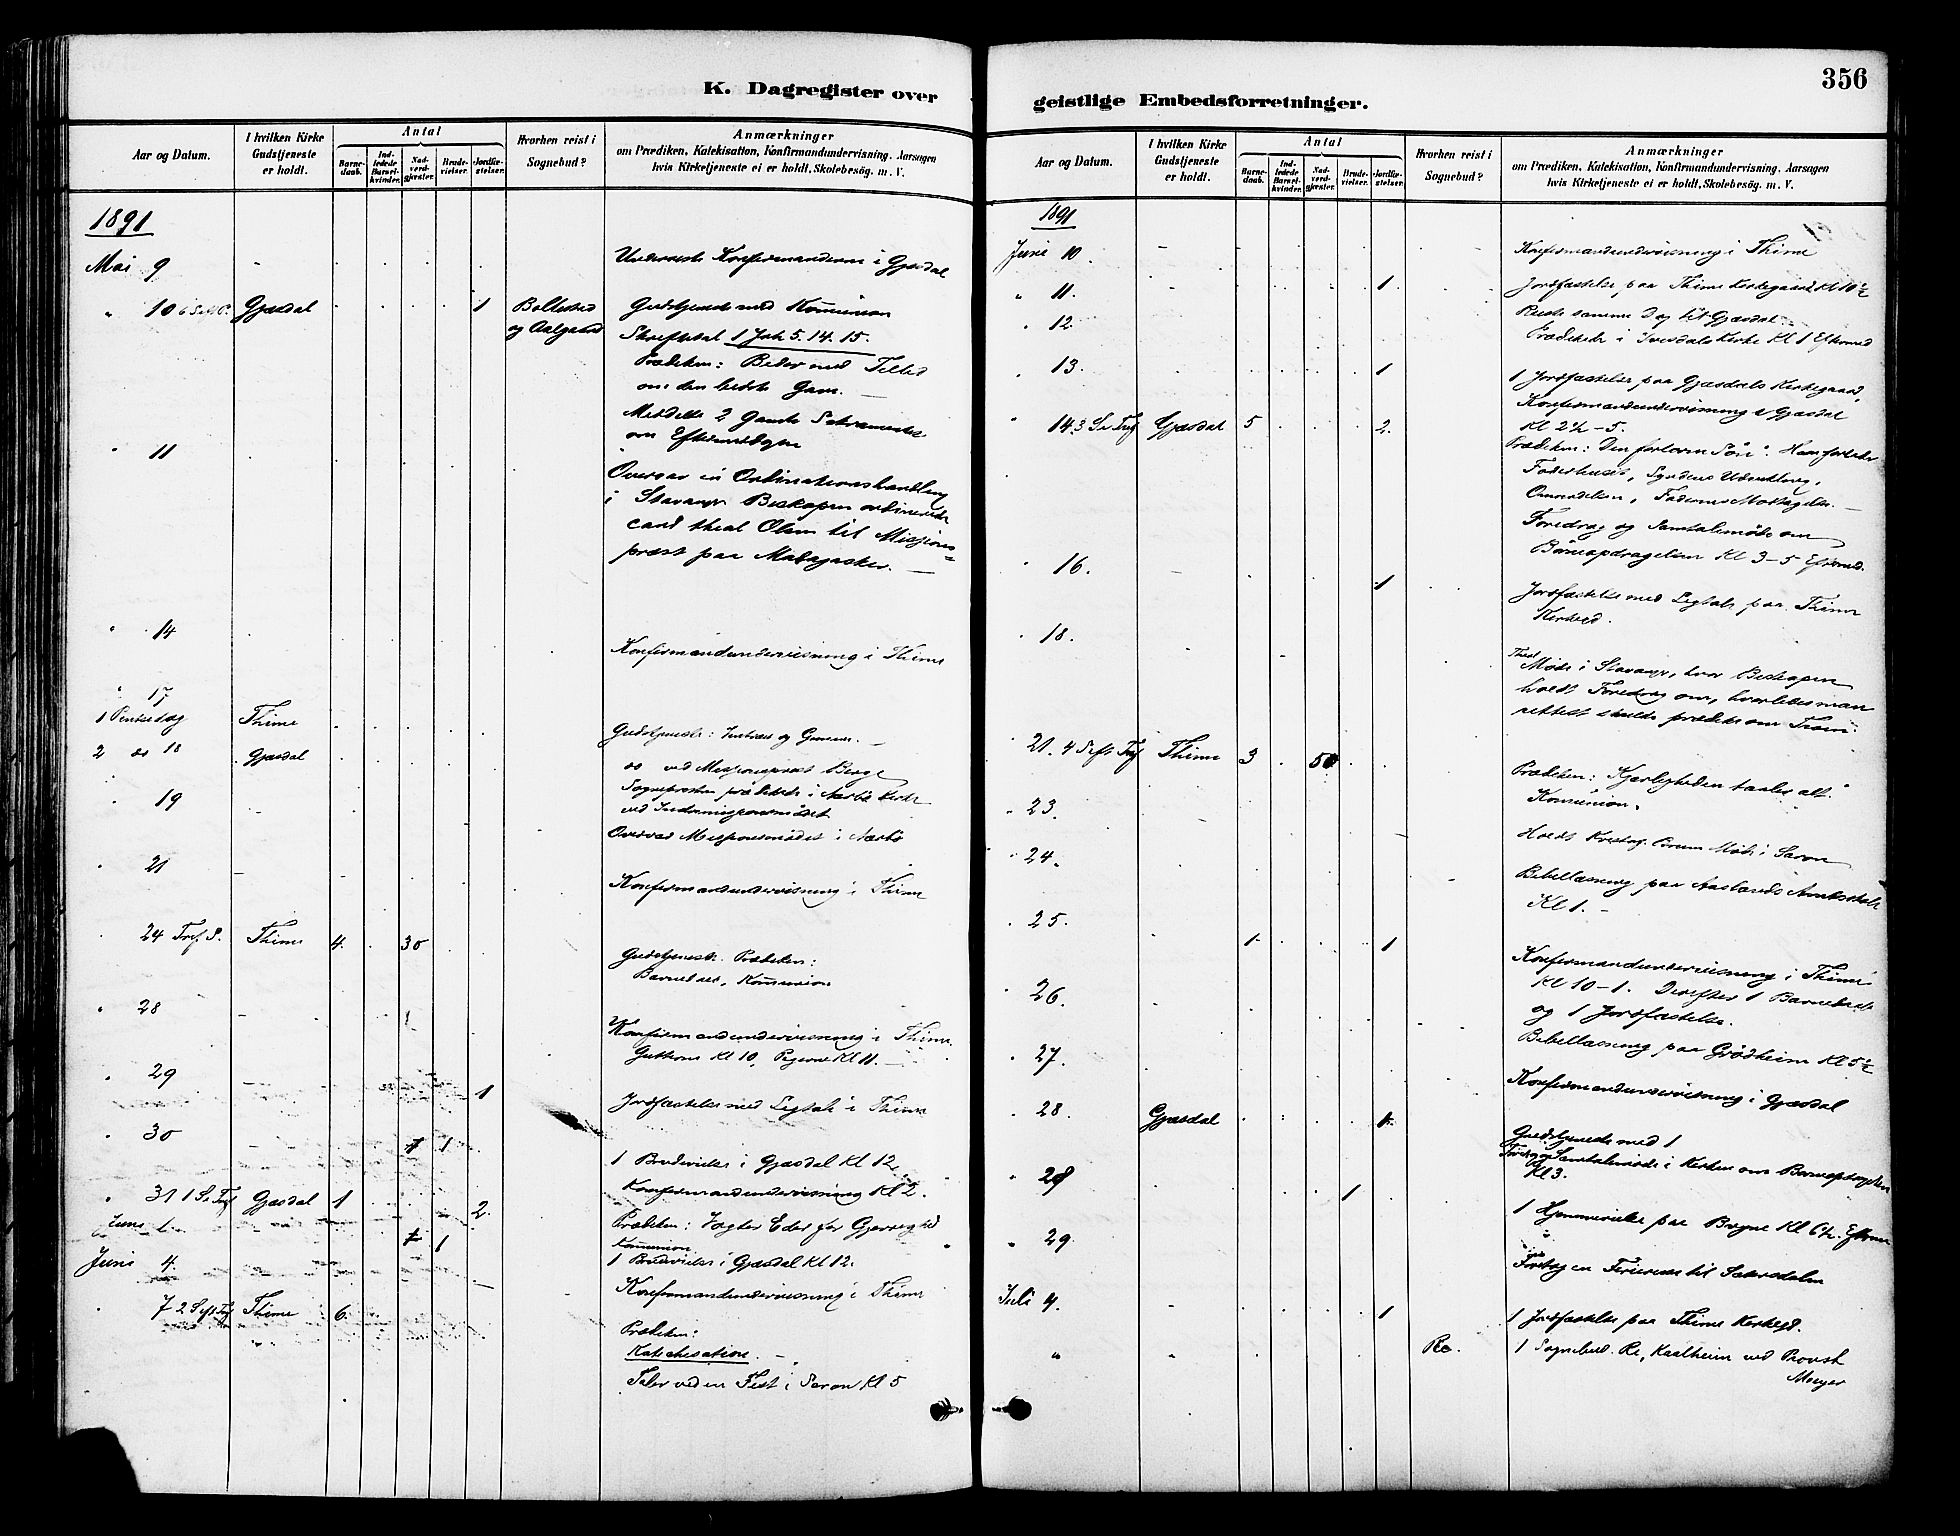 K. Dagregister over
Aar og Datum.
I hvilken Kirke Gudstjeneste er holdt.
Antal
Barnedaab.
Indledede Barselkvinder.
Nadverdgjester.
Brudevielser.
Jordfæstelser.
Hvorhen reist i Sognebud?
Anmærkninger
om Prædiken, Katekisation, Konfirmandundervisning, Aarsagen
hvis Kirketjeneste ei er holdt, Skolebesøg. m. V.
1891
Mai 9 Konfirmanderne i Gjæsdal
" 10 Gjæsdal 1 Gudstjeneste med Kommunion
og Aalgaard Skriftetal 1 Joh 5. 14. 15.
Prædiken: Beder med Tillid
om den bedste Gave.
Meddelte 2 Gamle Sakramentet
om Eftermiddagen
" 11 Overvar en Ordinationshandling
i Stavanger Biskopen ordinerede
cand theol Olsen til Missions-
præst paa Madagaskar.
" 14 Konfirmandundervisning i Thime
" 17
1 Pintsedag Thime Gudstjeneste:
2 do 18 Gjæsdal do ved Missionsprest Berge
Sognepresten prædikede i Nærbø Kirke
ved Indremissionsmødet
" 19 Overvar Missionsmødet i Nærbø
" 21 Konfirmandundervisning i Thime
" 24 Tref. S. Thime 4. 30 Gudstjeneste. Prædiken:
Barnedaab, Kommunion
" 28 Konfirmandundervisning i Thime.
Gutterne Kl 10, Pigerne Kl 11.
" 29 1 Jordfæstelse med Ligtale i Thime
" 30 1 1 Brudevielse i Gjæsdal Kl 12.
Konfirmandundervisning Kl 2.
" 31 1 S. Tref Gjæsdal 1 2. Prædiken: Vogter Eder for Gjerrighed
Kommunion
Juni 1. 1 1 Brudevielse i Gjæsdal Kl 12.
Juni 4. Konfirmandundervisning i Thime
" 7 2 S eft Tref Thime 6. Prædiken:
Katechisation.
Taler ved en Fest i Saron Kl 5
geistlige Embedsforretninger.
356
Aar og Datum.
I hvilken Kirke Gudstjeneste er holdt.
Antal
Barnedaab.
Indledede Barselkvinder.
Nadverdgjester.
Brudevielser.
Jordfæstelser.
Hvorhen reist i Sognebud?
Anmærkninger
om Prædiken, Katekisation, Konfirmandundervisning, Aarsagen
hvis Kirketjeneste ei er holdt, Skolebesøg. m. V.
1891
Juni 10. Konfirmandundervisning i Thime
" 11. 1 Jordfæstelse paa Thime Kirkegaard Kl 10½
Reiste samme Dag til Gjæsdal
" 12. Prædikede i Kirke Kl 1 Eftermd
" 13. 1 1 Jordfæstelse paa Gjæsdals Kirkegaard,
Konfirmandundervisning i Gjæsdal
Kl 2½-5.
" 14. 3 S e Tref Gjæsdal 5 2. Prædiken: Den fortorne Søn: Han forlader
Faderhuset, Syndens Udvikling,
Omvendelsen, Faderens Modtagelse.
Foredrag og Samtalemøde om
Børneopdragelsen Kl 3-5 Eftermd.
" 16. 1 Jordfæstelse med Ligtale paa Thime
" 18. Møde i Stavanger, hvor Biskopen
holdt Foredrag om, hvorledes man
rettest skulde prædike om Troen.
" 21. 4 S eft Tref Thime 3 50 Prædiken: Kjærligheden taaler alt.
Kommunion.
" 23. Holdt Møde i Saron
" 24. Bibellæsning paa
Kl 1.
" 25. 1 1 Konfirmandundervisning i Thime
Kl 10-1. Derefter 1 Barnedaab
og 1 Jordfæstelse.
" 26. Bibellæsning paa Grødheim Kl 5½
" 27. Konfirmandundervisning i Gjæsdal
" 28. Gjæsdal 1 Gudstjeneste med 1
Foredrag og Samtalemøde i Kirken om Barneopdragelsen
Kl 3.
" 28 1 1 Hjemmevielse paa Bryne Kl 6½. Efterm
" 29. Foretog en Feriereise til Sætersdalen
Juli 4. 1 1 Jordfæstelse paa Thime Kirkegd.
" Re. 1 Sognebud. Re, Kaalheim ved Provst
Meyer